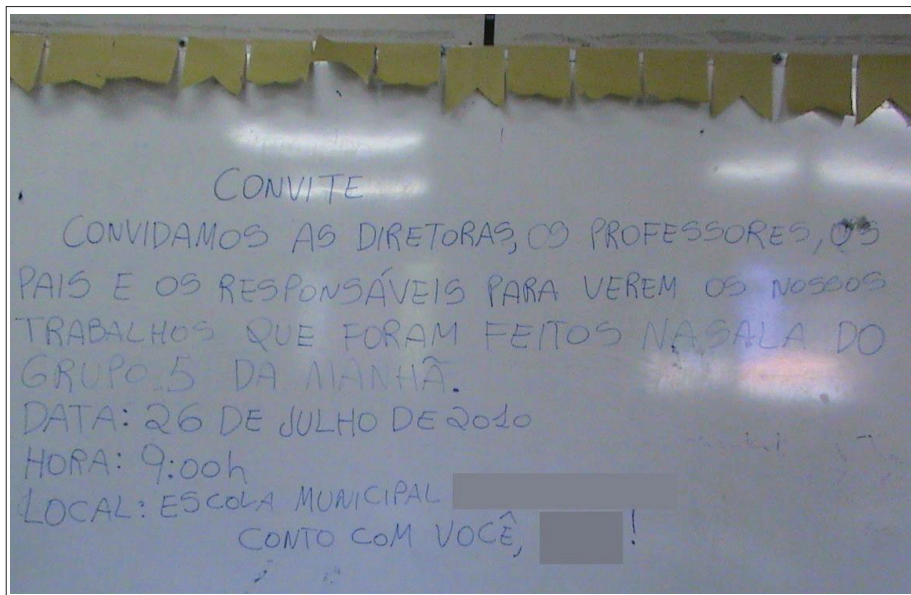 CONVITE
CONVIDAMOS AS DIRETORAS, OS PROFESSORES, OS
PAIS E OS RESPONSÁVEIS PARA VEREM OS NOSSOS
TRABALHOS QUE FORAM FEITOS NA SALA DO
GRUPO 5 DA MANHÃ.
DATA: 26 DE JULHO DE 2010
HORA: 9:00h
LOCAL: ESCOLA MUNICIPAL
CONTO COM VOCÊ, !